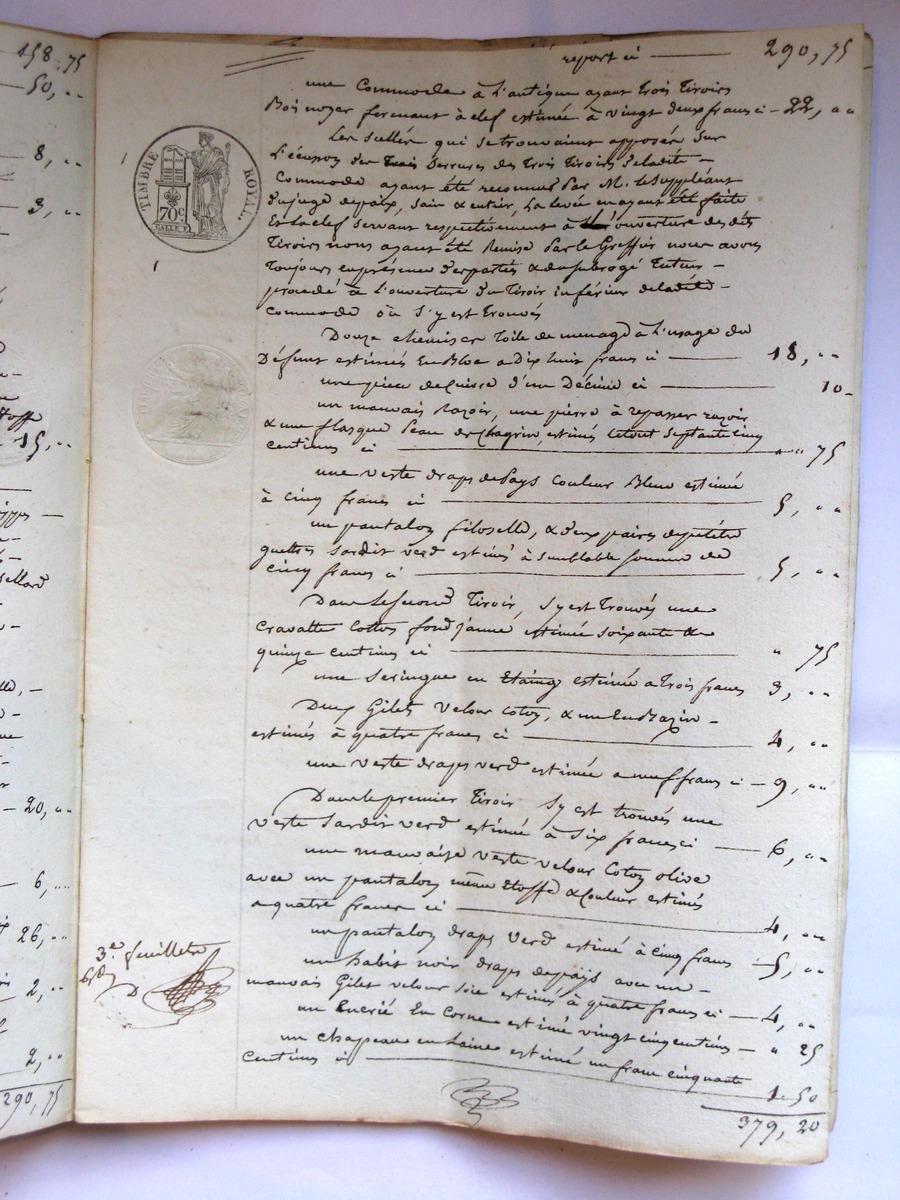 458,75
50, ..
8, ..
3, ..
15, ..
20, ..
6, ..
26, ..
2, ..
2, ..
290, 75
TIMBRE ROYAL.
70c.
3.e feuillet
report ci 290, 75
une Commode à l'antique ayant trois Tiroirs
Bois noyer fermant à clef estimée à vingt deux francs ci - 22, ..
Les scellés qui se trouvaient apposés sur
L'écusson des trois Serrures des Trois Tiroirs de ladite -
Commode ayant été reconnus par M. le Suppléant
du juge de paix, sain & entier, La levée en ayant été faite
Et la clef servant respectivement à l'ouverture des dits
Tiroirs nous ayant été Remise par le Greffier nous avons
Toujours en présence des parties & du subrogé Tuteur -
procédé à L'ouverture du Tiroir inférieur de ladite -
commode où S'y est trouvés
Douze chemises toile de menage à l'usage du
Défunt estimées En Bloc a Dix huit francs ci 18, ..
une pièce de Suisse d'un Décime ci 10 -
un mauvais Razoir, une pierre à repasser razoir
& une flasque Peau de Chagrin, estimés le tout Septante cinq
centimes ci " " 75
une veste draps de Pays Couleur Bleue estimée
à Cinq francs ci 5, ..
un pantalon filoselle, & deux paires de petites
guettres Sardis verd estimés à semblable somme de
cinq francs ci 5, ..
Dans le second Tiroir, S'y est trouvés une
Cravatte Cotton fond jaune estimée soixante &
quinze centimes ci " 75
une Seringue en Etaing estimée a Trois francs 3, ..
Deux Gilet velour Coton, & un en Bazin -
estimés à quatre francs ci 4, ..
une veste draps verd estimée a neuf francs ci - 9, ..
Dans le premier Tiroir S'y est trouvés une
veste Sardis verd estimée à Six francs ci 6, ..
une mauvaise veste velour Coton olive
avec un pantalon même Etoffe & Couleur estimés
a quatre francs ci 4, ..
un pantalon draps verd estimé à cinq francs - 5, ..
un habit noir draps de païs avec un -
mauvais Gilet velour soie estimés à quatre francs ci - 4, ..
un Encrié En Corne estimé vingt cinq centimes - " 25
un chapeau en Laine estimé un franc cinquante
Centimes ci 1 50
379, 20